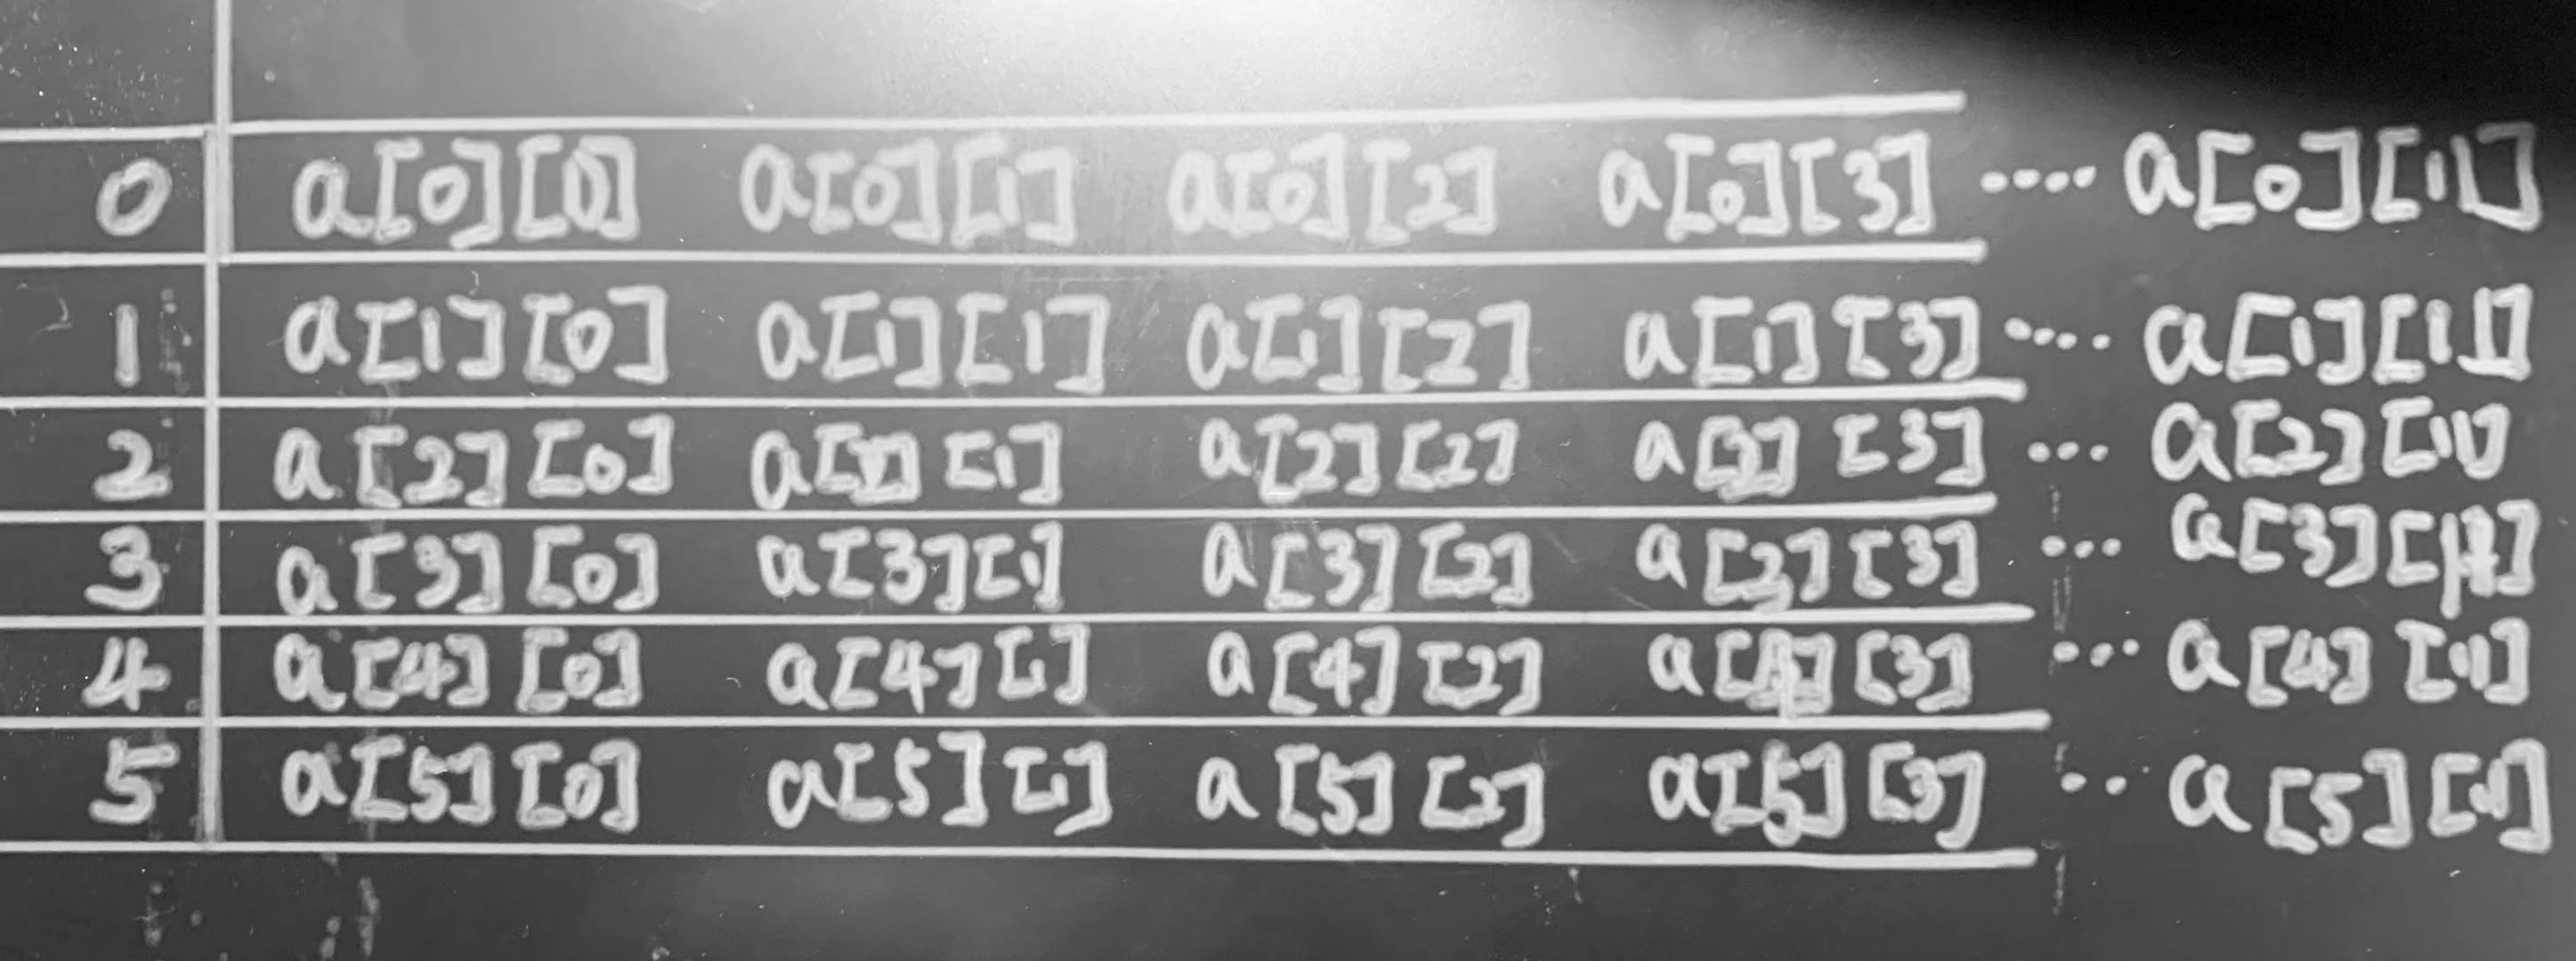 0 a[0][0] a[0][1] a[0][2] a[0][3] .... a[0][11]
1 a[1][0] a[1][1] a[1][2] a[1][3] .... a[1][11]
2 a[2][0] a[2][1] a[2][2] a[2][3] ... a[2][11]
3 a[3][0] a[3][1] a[3][2] a[3][3] ... a[3][11]
4 a[4][0] a[4][1] a[4][2] a[4][3] ... a[4][11]
5 a[5][0] a[5][1] a[5][2] a[5][3] ... a[5][11]